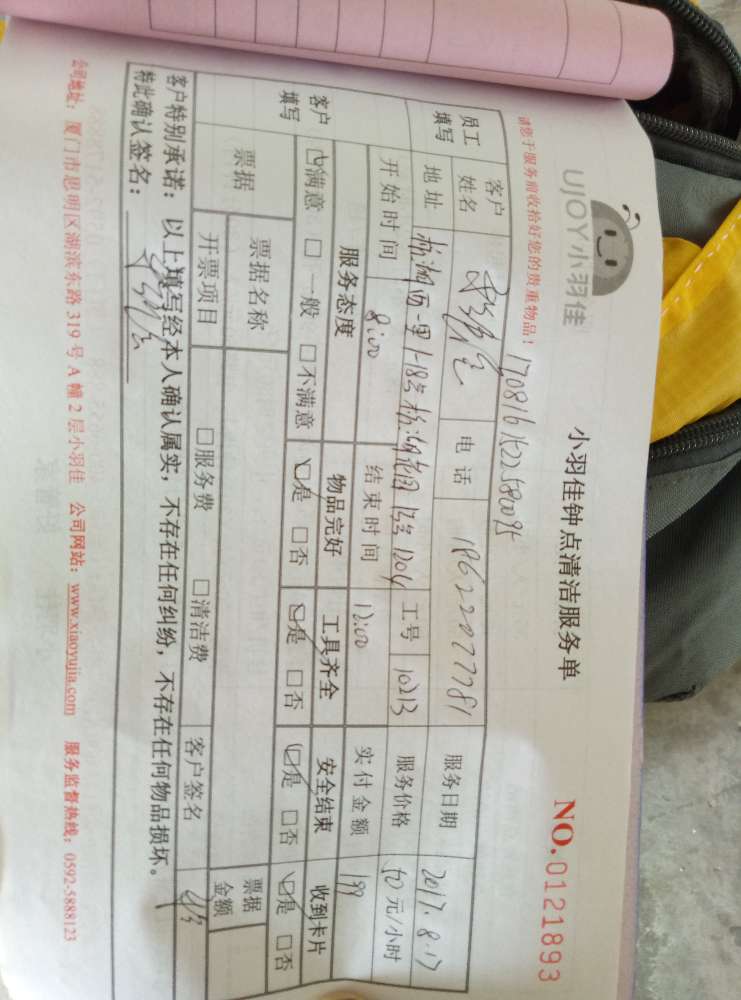 UJOY小羽佳
小羽佳钟点清洁服务单
NO.0121893
请您于服务前收拾好您的贵重物品！
员工
填写
客户
姓名
电话
服务日期 2017.8.17
地址
工号 10213
服务价格 元/小时
开始时间 8:00
结束时间 12:00
实付金额 199
客户
填写
服务态度 物品完好 工具齐全 安全结束 收到卡片
☑满意 □一般 □不满意 ☑是 □否 ☑是 □否 ☑是 □否 ☑是 □否
票据
票据名称
票据
金额
开票项目 □服务费 □清洁费 客户签名
客户特别承诺：以上填写经本人确认属实，不存在任何纠纷，不存在任何物品损坏。
特此确认签名：
公司地址：厦门市思明区湖滨东路 319 号 A 幢 2 层小羽佳 公司网站：www.xiaoyujia.com 服务监督热线：0592-5888123